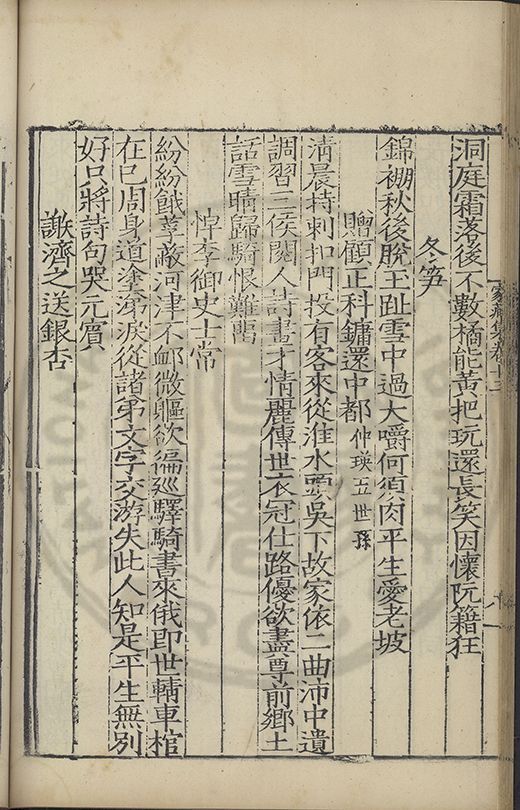 洞庭霜落後不數橘能黃把玩還長笑因懷阮籍狂
冬笋
錦棚秋後脫玉趾雪中過大嚼何須肉平生愛老坡
贈顧正科鏞還中都仲瑛五世孫
清晨持刺扣門投有客來從淮水頭吳下故家依二曲沛中遺
調習三侯閱人詩畫才情麗傳世衣冠仕路優欲盡尊前鄉土
話雪晴歸騎恨難畱
悼李御史士常
紛紛餓莩蔽河津不䘏微軀欲徧廵驛騎書來俄即世輀車棺
在已周身道塗涕淚從諸弟文字交游失此人知是平生無別
好只將詩句哭元賓
謝濟之送銀杏
家藏集卷十三
八